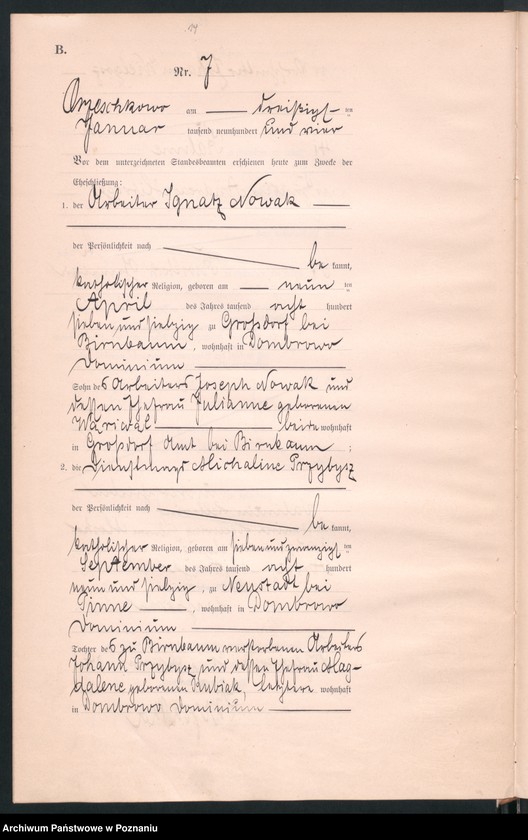 14
B.
Nr. 7
Orzeschkowo am dreißigsten
Januar tausend neunhundert und vier
Vor dem unterzeichneten Standesbeamten erschienen heute zum Zwecke der
Eheschließung:
1. der Arbeiter Ignatz Nowak
der Persönlichkeit nach
be kannt,
katholischer Religion, geboren am neunten
April des Jahres tausend acht hundert
sieben und siebzig zu Großdorf bei
Birnbaum, wohnhaft in Dombrowo
Dominium
Sohn des Arbeiters Joseph Nowak und
dessen Ehefrau Julianne geborenen
beide wohnhaft
in Großdorf Amt bei Birnbaum ;
2. die Dienstmagd Michaline Przybysz
der Persönlichkeit nach
be kannt,
katholischer Religion, geboren am sieben und zwanzigsten
September des Jahres tausend acht hundert
neun und siebzig, zu Neustadt bei
Pinne, wohnhaft in Dombrowo
Dominium
Tochter des zu Birnbaum verstorbenen Arbeiters
Johann Przybysz und dessen Ehefrau Mag-
dalene geborenen Kubiak, letztere wohnhaft
in Dombrowo Dominium
Archiwum Państwowe w Poznaniu